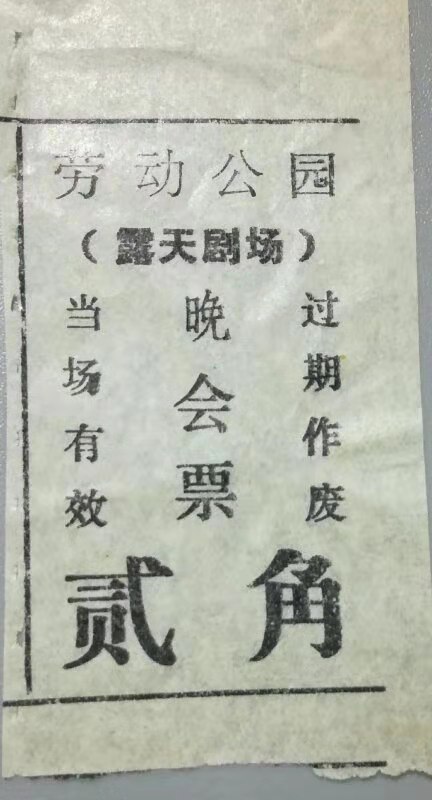 劳动公园
（露天剧场）
当场有效
晚会票
过期作废
贰角